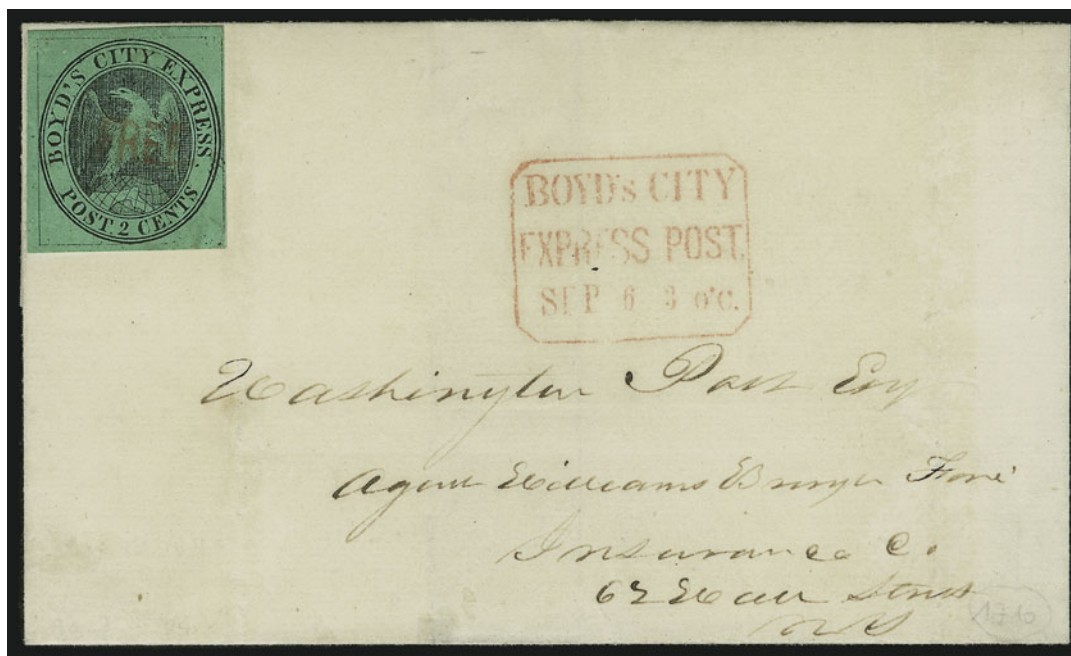 BOYD'S CITY EXPRESS.
POST. 2 CENTS
FREE
BOYD's CITY
EXPRESS POST.
SEP 6 3 o'c.
Washington Post Esq
Agent Williams Fire
Insurance C.
62 Wall Street
NY
1710